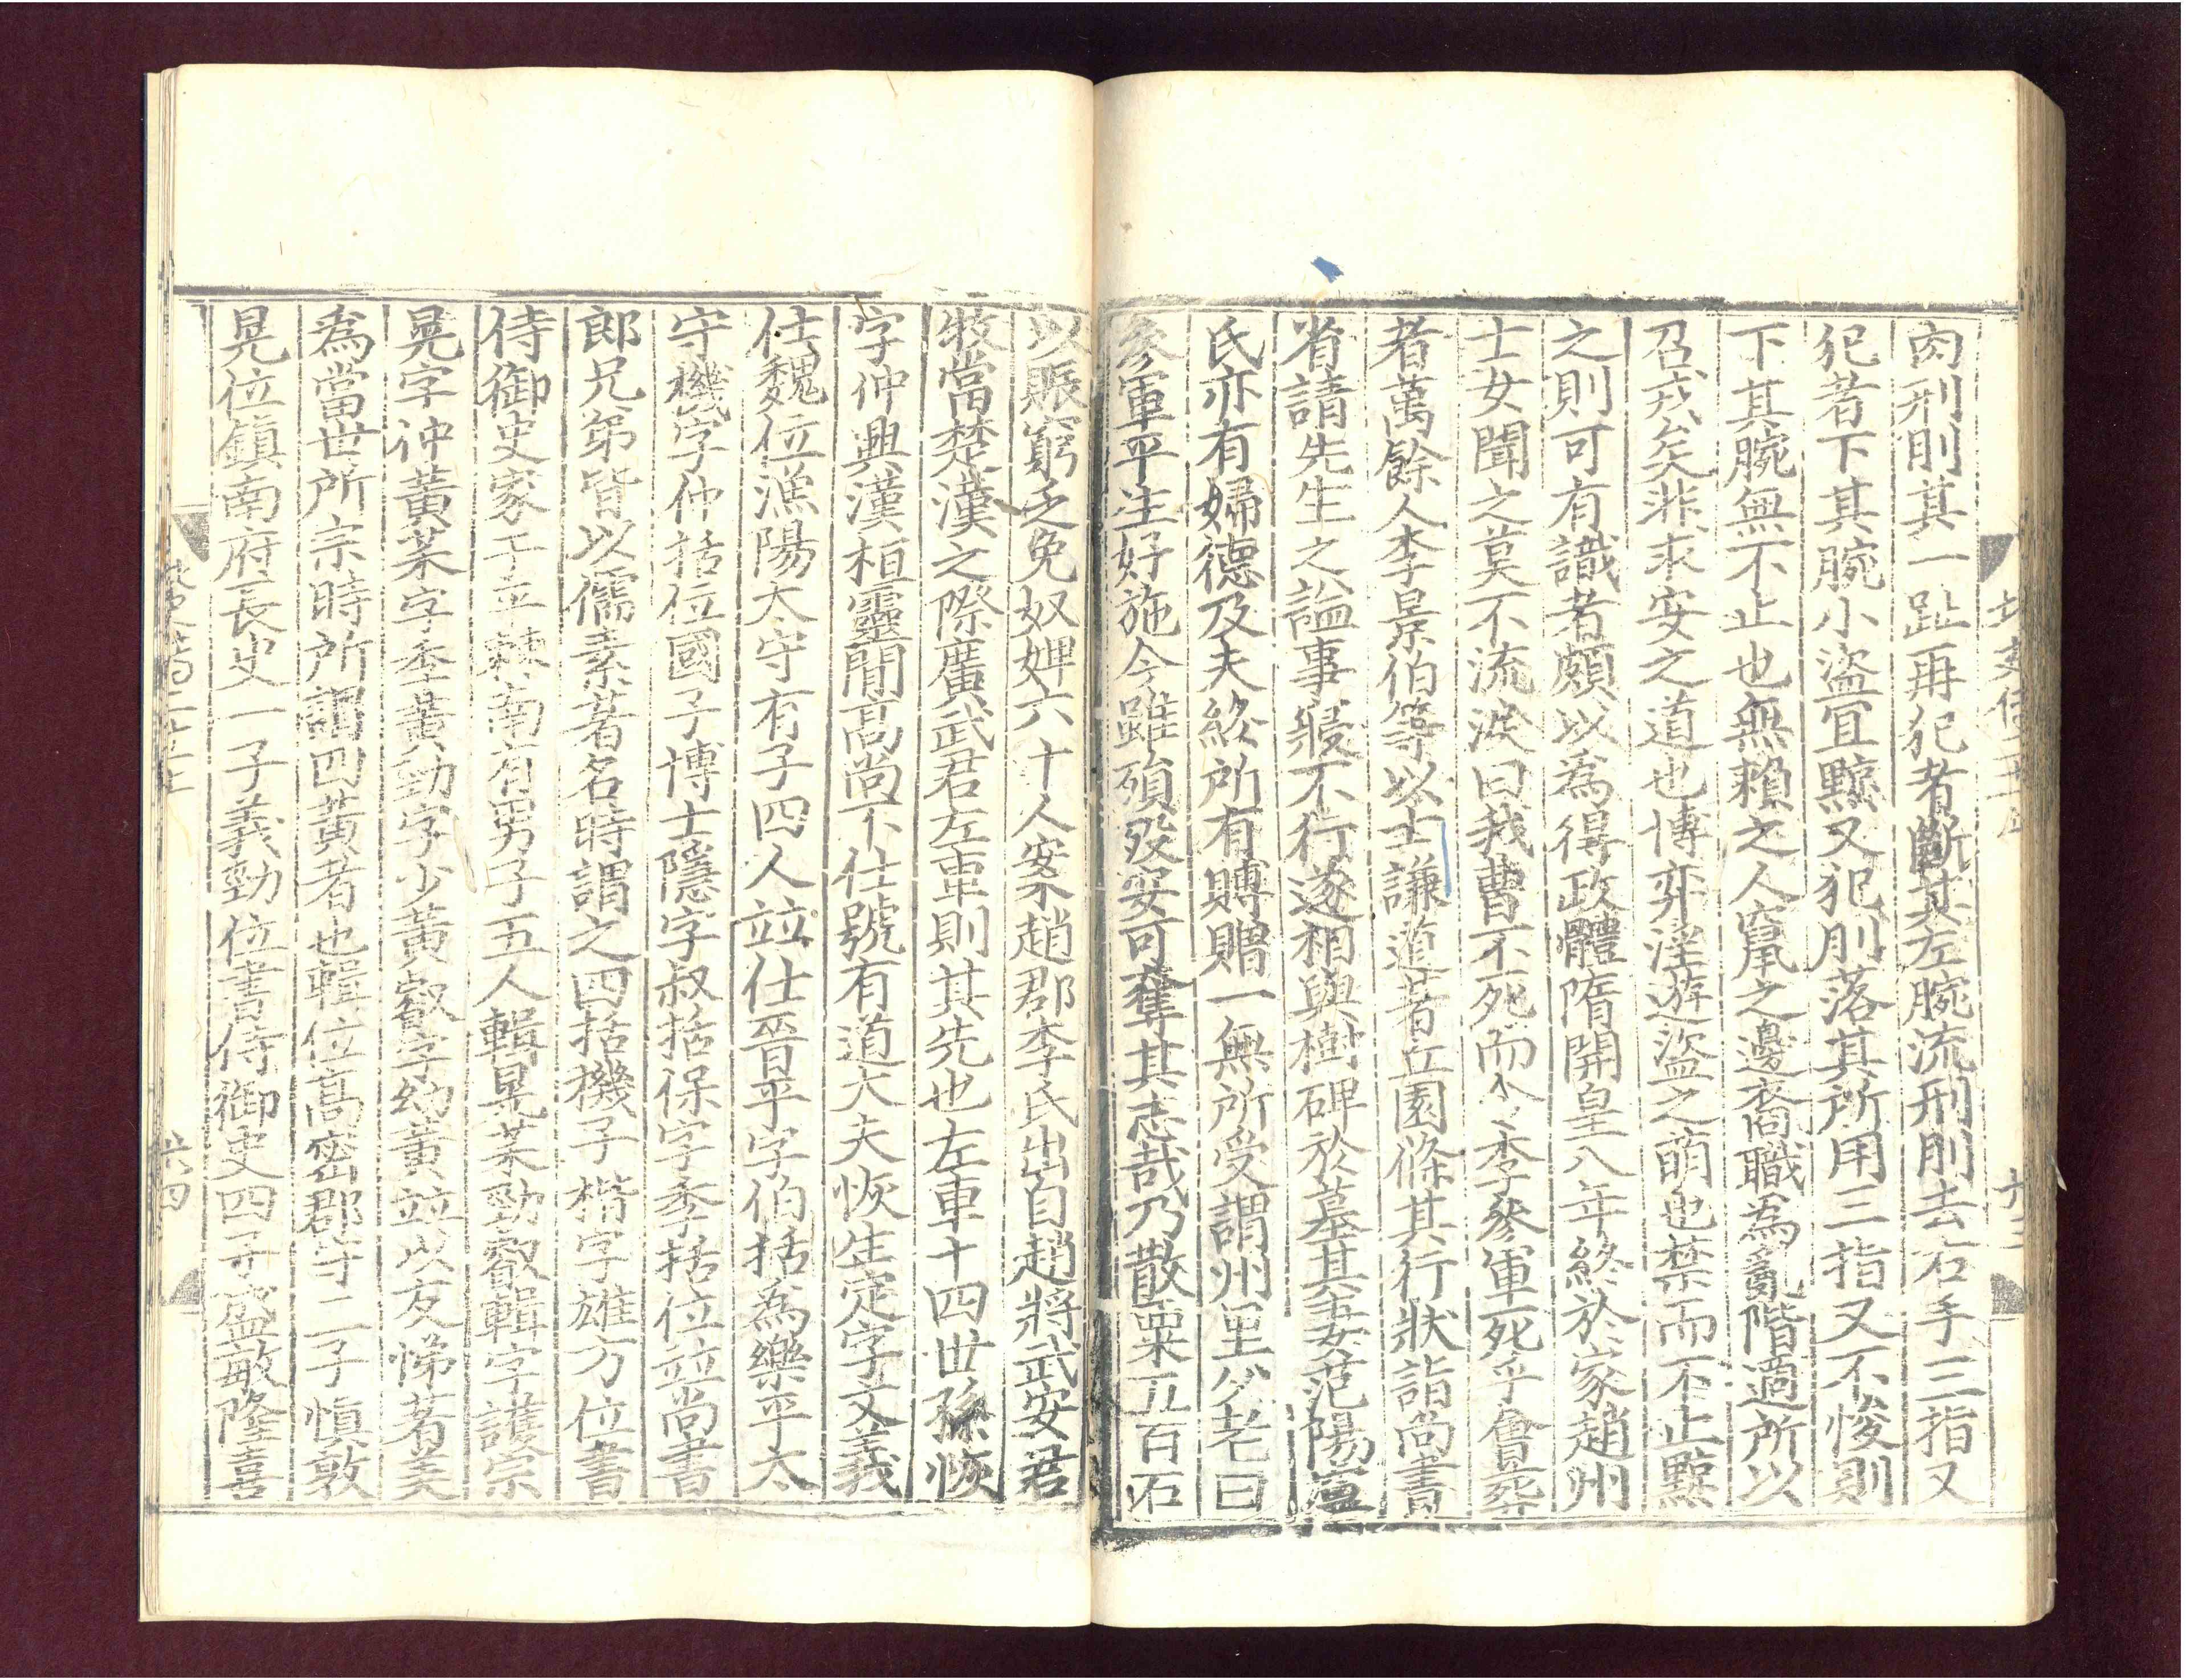 肉刑刖其一趾再犯者斷其左腕流刑刖去右手三指又
犯者下其腕小盜宜黥又犯刖落其所用三指又不悛則
下其腕無不止也無賴之人竄之邊裔職為亂階適所以
召戎矣非求安之道也博弈淫遊盜之萌也禁而不止黥
之則可有識者頗以為得政體隋開皇八年終於家趙州
士女聞之莫不流涙曰我曹不死而令李參軍死乎會葬
者萬餘人李景伯等以士謙道著丘園條其行狀詣尚書
省請先生之謚事寢不行遂相與樹碑於墓其妻范陽盧
氏亦有婦德及夫終所有賻贈一無所受謂州里父老曰
參軍平生好施今雖殞歿安可奪其志哉乃散粟五百石
以賑窮乏免奴婢六十人案趙郡李氏出自趙將武安君
牧當楚漢之際廣武君左車則其先也左車十四世孫恢
字仲興漢桓靈間高尚不仕號有道大夫恢生定字文義
仕魏位漁陽太守有子四人竝仕晉平字伯括為樂平太
守機字仲括位國子博士隱字叔括保字季括位竝尚書
郎兄弟皆以儒素著名時謂之四括機子楷字雄方位書
侍御史家于平棘南有男子五人輯晃棻勁叡輯字護宗
晃字仲黃棻字季黃勁字少黃叡字幼黃竝以友悌著美
為當世所宗時所謂四黃者也輯位高密郡守二子慎敦
晃位鎮南府長史一子義勁位書侍御史四子盛敏隆喜
六四